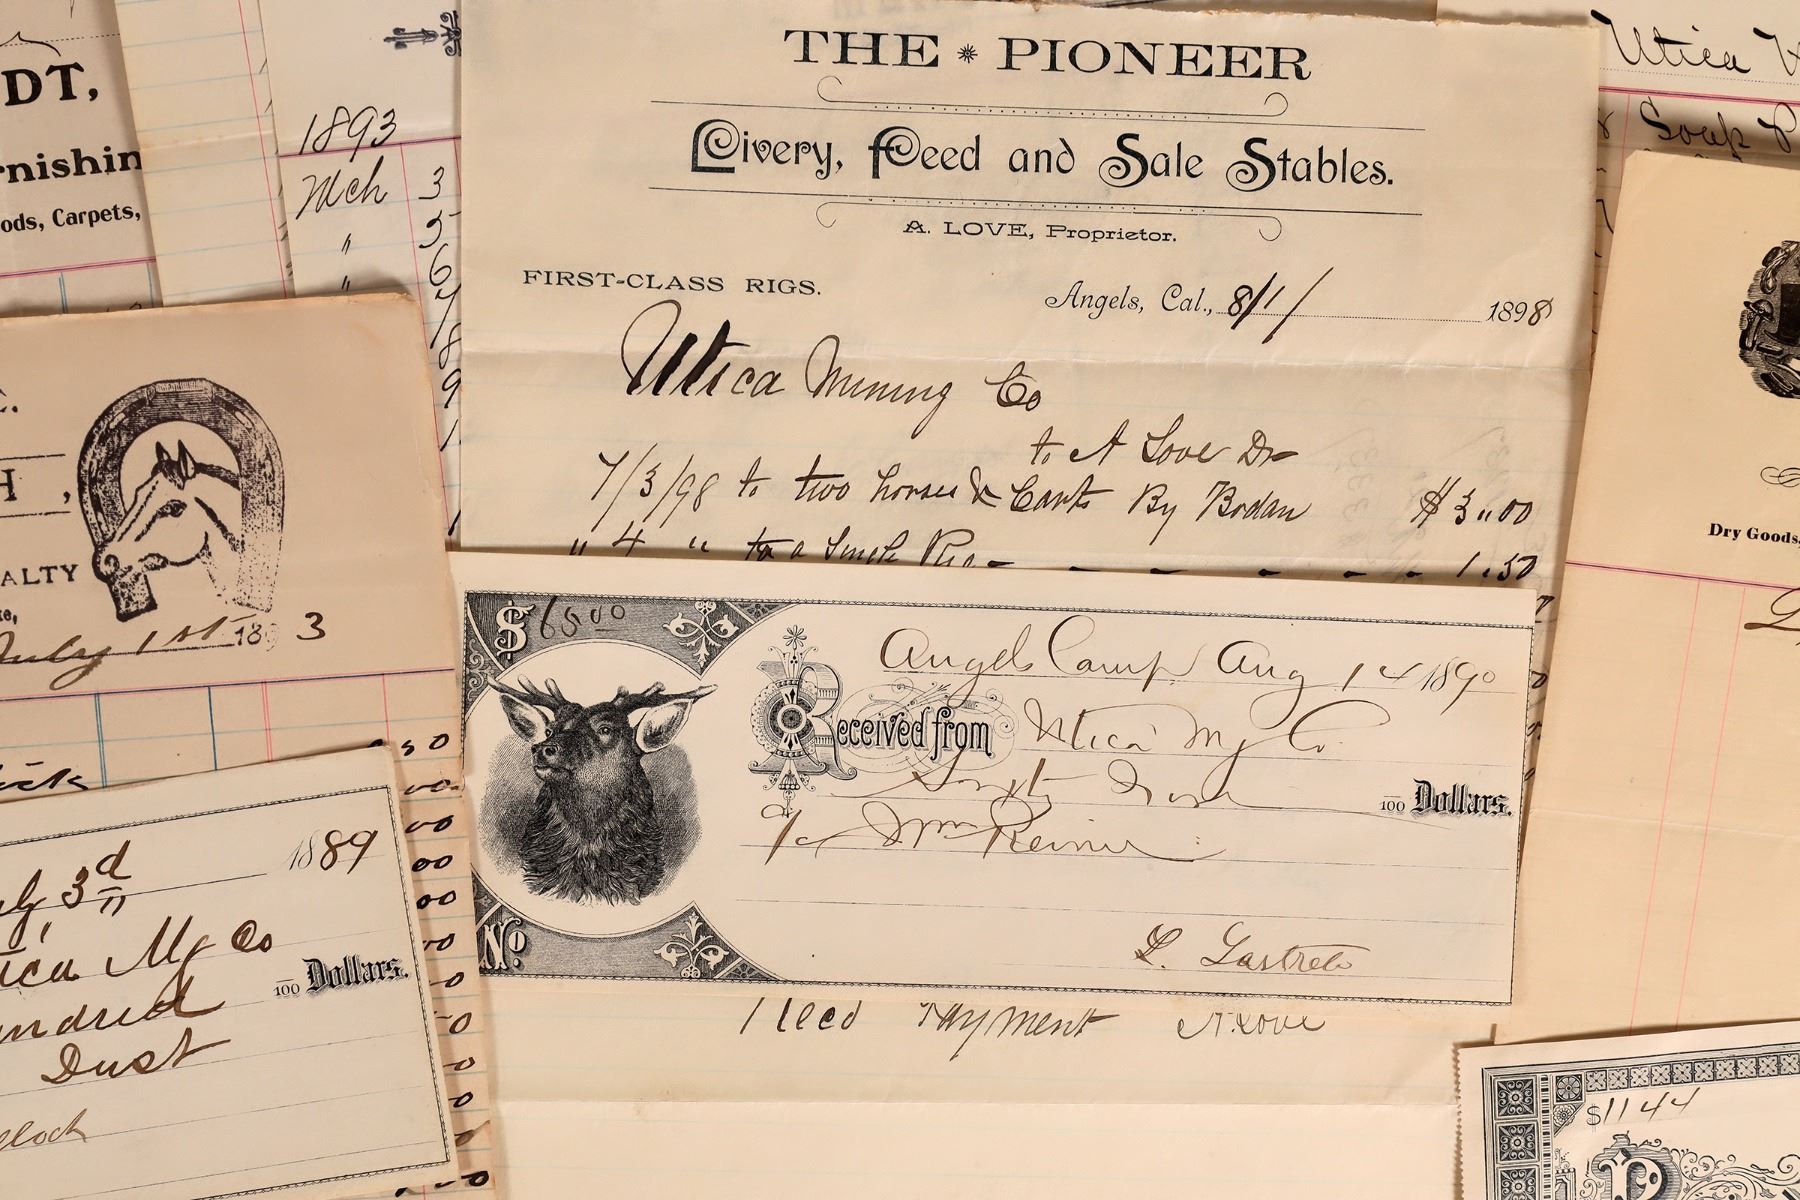 DT,
rnishin
ods, Carpets,
1893
Mch 3
" 5
" 6
7
8
9
THE * PIONEER
Livery, Feed and Sale Stables.
A. LOVE, Proprietor.
FIRST-CLASS RIGS.
Angels, Cal., 8/1/ 1898
Utica Mining Co
to A Love Dr
7/3/98 to two horses & Cart By Bodan $3.00
" 4 " to a Single Rig - - - - - 1.50
Recd Payment A. Love
Utica
Soap
Dry Goods,
H ,
ALTY
July 1st 1893
$ 65 00
Angels Camp Aug 14 1890
Received from Utica Mg Co.
Sixty Five 100 Dollars.
a/c Wm Reiner
L. Lastreto
No.
ly 3d 1889
ica Mg Co
undred 100 Dollars.
Dust
$1144